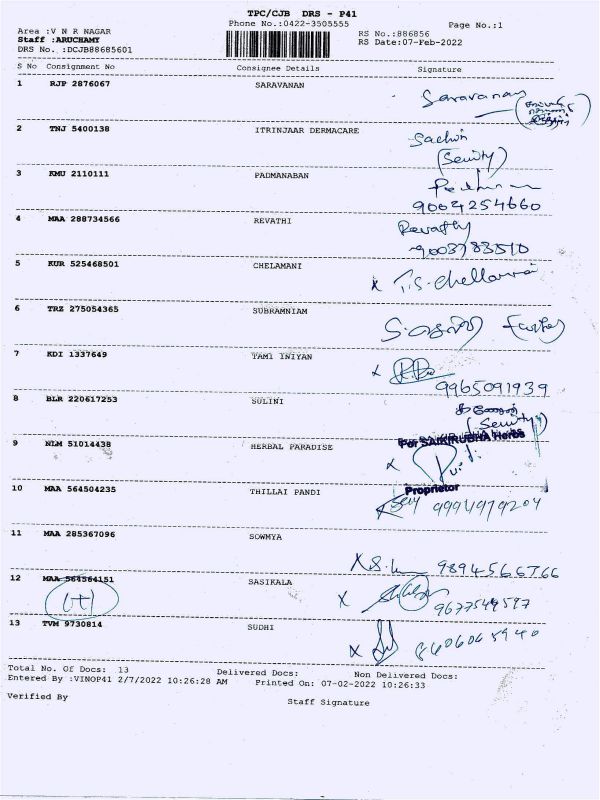 TPC/CJB DRS - P41
Phone No.:0422-3505555
Page No.:1
Area :V N R NAGAR
RS No.:886856
Staff :ARUCHAMY
RS Date:07-Feb-2022
DRS No. :DCJB88685601
S No Consignment No Consignee Details Signature
1 RJP 2876067 SARAVANAN
Saravanan
2 TNJ 5400138 ITRINJAAR DERMACARE
Sachin
3 KMU 2110111 PADMANABAN
9004254660
4 MAA 288734566 REVATHI
Revathy
9003783510
5 KUR 525468501 CHELAMANI
x T.S.
6 TRZ 275054365 SUBRAMNIAM
7 KDI 1337649 TAMI INIYAN
x
9965091939
8 BLR 220617253 SULINI
9 NLM 51014438 HERBAL PARADISE
For SAIKIRUBHA Herbs
x
Proprietor
10 MAA 564504235 THILLAI PANDI
9994979204
11 MAA 285367096 SOWMYA
x 9894566766
12 MAA 564564151 SASIKALA
(H)
x
9677549597
13 TVM 9730814 SUDHI
x 8606065940
Total No. Of Docs: 13 Delivered Docs: Non Delivered Docs:
Entered By :VINOP41 2/7/2022 10:26:28 AM Printed On: 07-02-2022 10:26:33
Verified By
Staff Signature